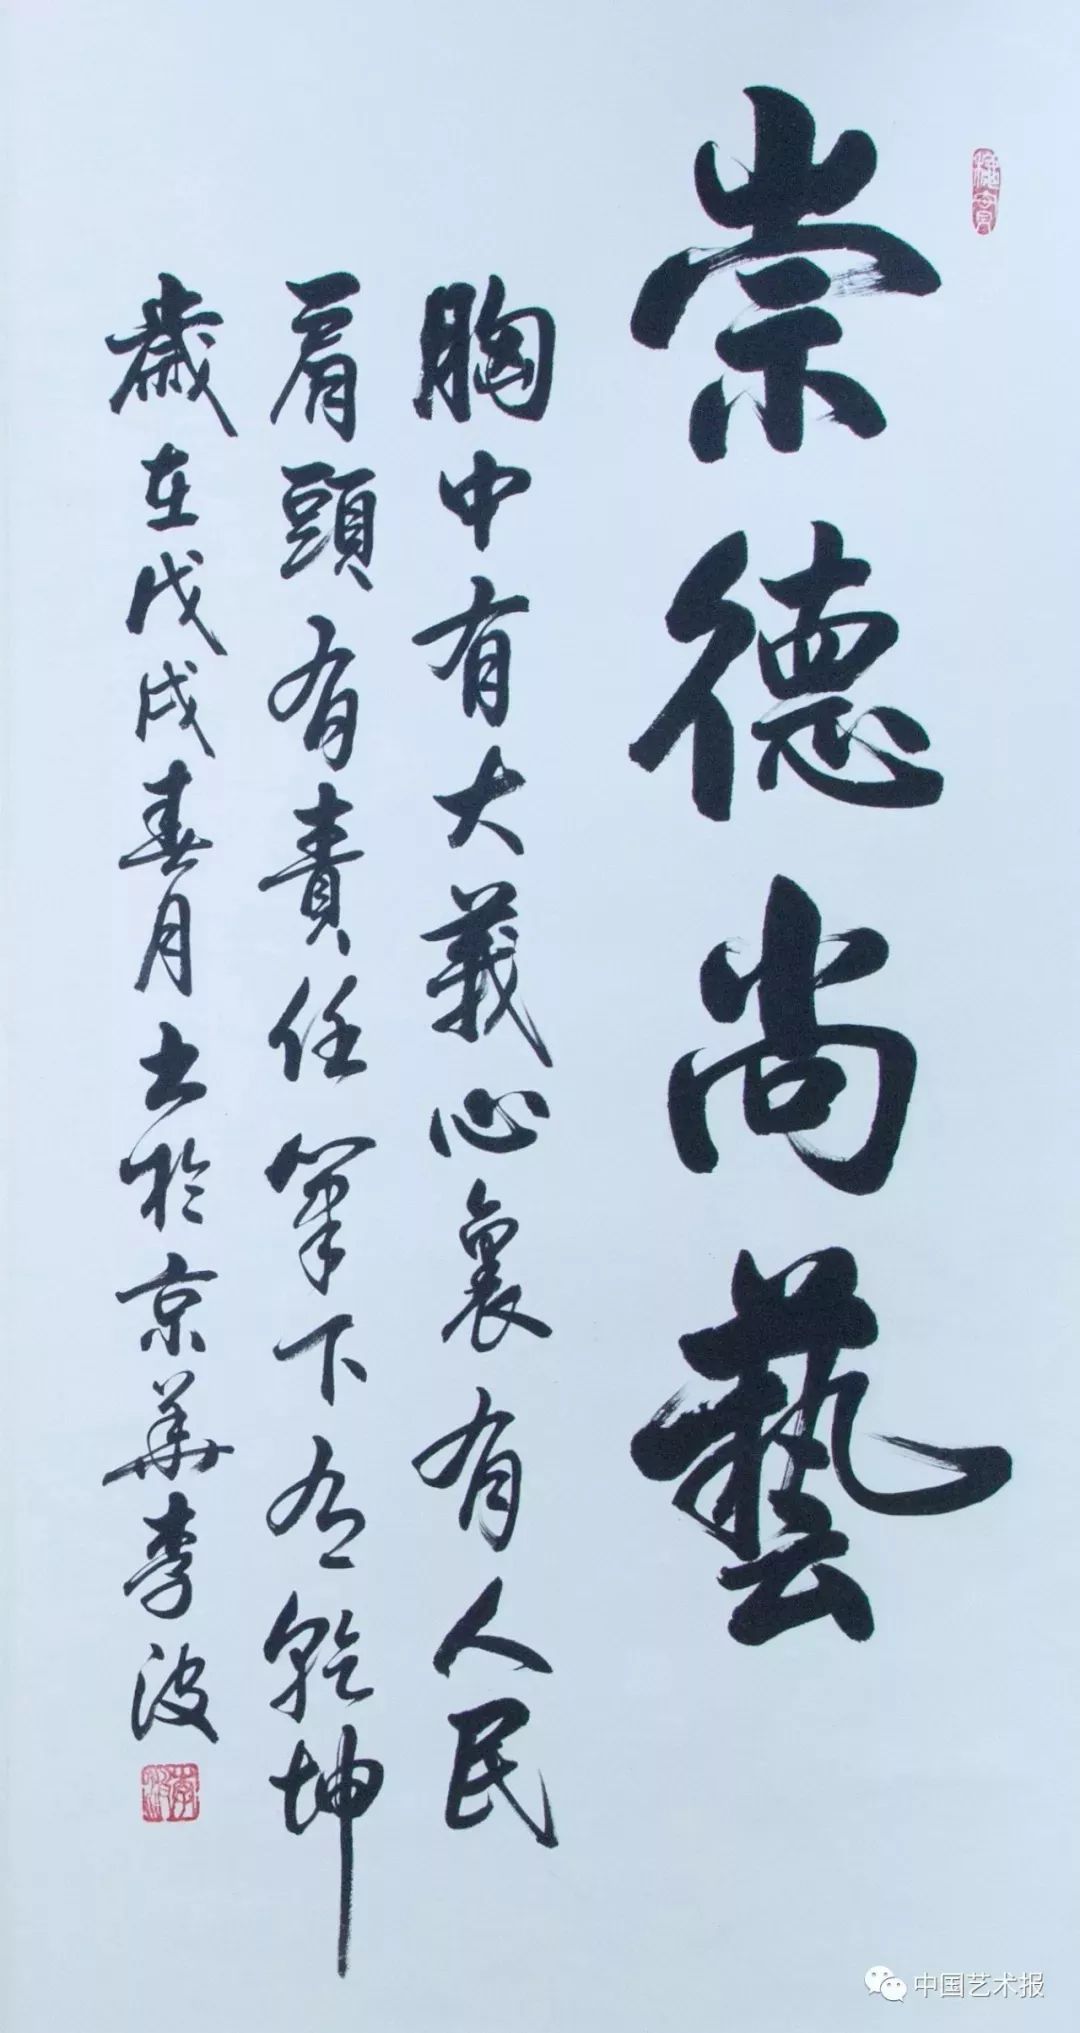 崇德尚藝
胸中有大義心裏有人民
肩頭有責任筆下有乾坤
歲在戊戌春月书於京華李波
李波
中国艺术报